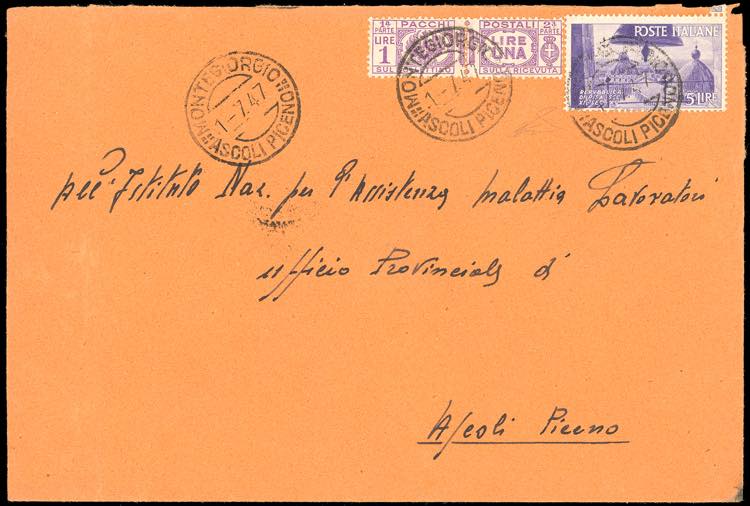 1ª PARTE PACCHI POSTALI 2ª PARTE
LIRE 1 LIRE UNA
SUL SULLA RICEVUTA
POSTE ITALIANE
REPUBBLICA
5 LIRE
MONTEGIORGIO
1-7.47
ASCOLI PICENO
MONTEGIORGIO
1-7.4
ASCOLI PICENO
ASCOLI PICEN
all'Istituto Naz. per l'Assistenza malattia Lavoratori
Ufficio Provinciale di
Ascoli Piceno